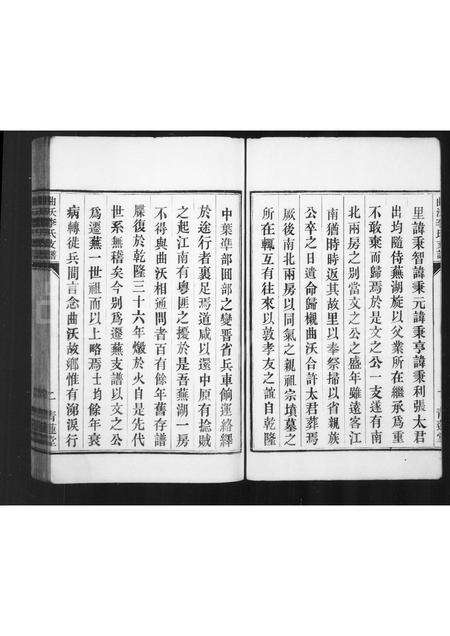 里諱秉智諱秉元諱秉亨諱秉利張太君
出均隨侍蕪湖旋以父業所在繼承爲重
不敢棄而歸焉於是文之公一支遂有南
北兩房之別當文之公之盛年雖遠客江
南猶時時返其故里以奉祭掃以省親族
公卒之日遺命歸櫬曲沃合許太君葬焉
厥後南北兩房以同氣之親祖宗墳墓之
所在輒互有往來以敦孝友之誼自乾隆
曲沃李氏支譜
二
青蓮堂
中葉準部回部之變晉省兵車餉運絡繹
於途行者裹足焉道咸以還中原有捻賊
之起江南有粵匪之擾於是吾蕪湖一房
不得與曲沃相通問者百有餘年舊存譜
牒復於乾隆三十六年燬於火自是先代
世系無稽矣今別爲遷蕪支譜以文之公
爲遷蕪一世祖而以上略焉士均餘年衰
病轉徙兵間言念曲沃故鄉惟有涕淚行